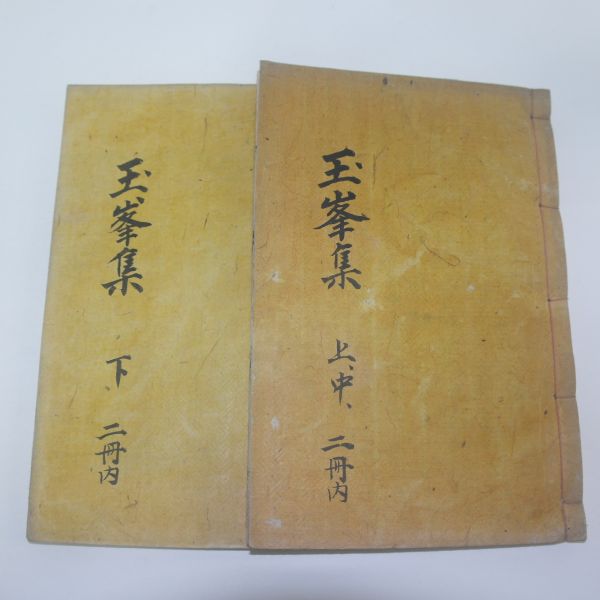 玉峯集
上、中、
二冊內
玉峯集
下、
二冊內